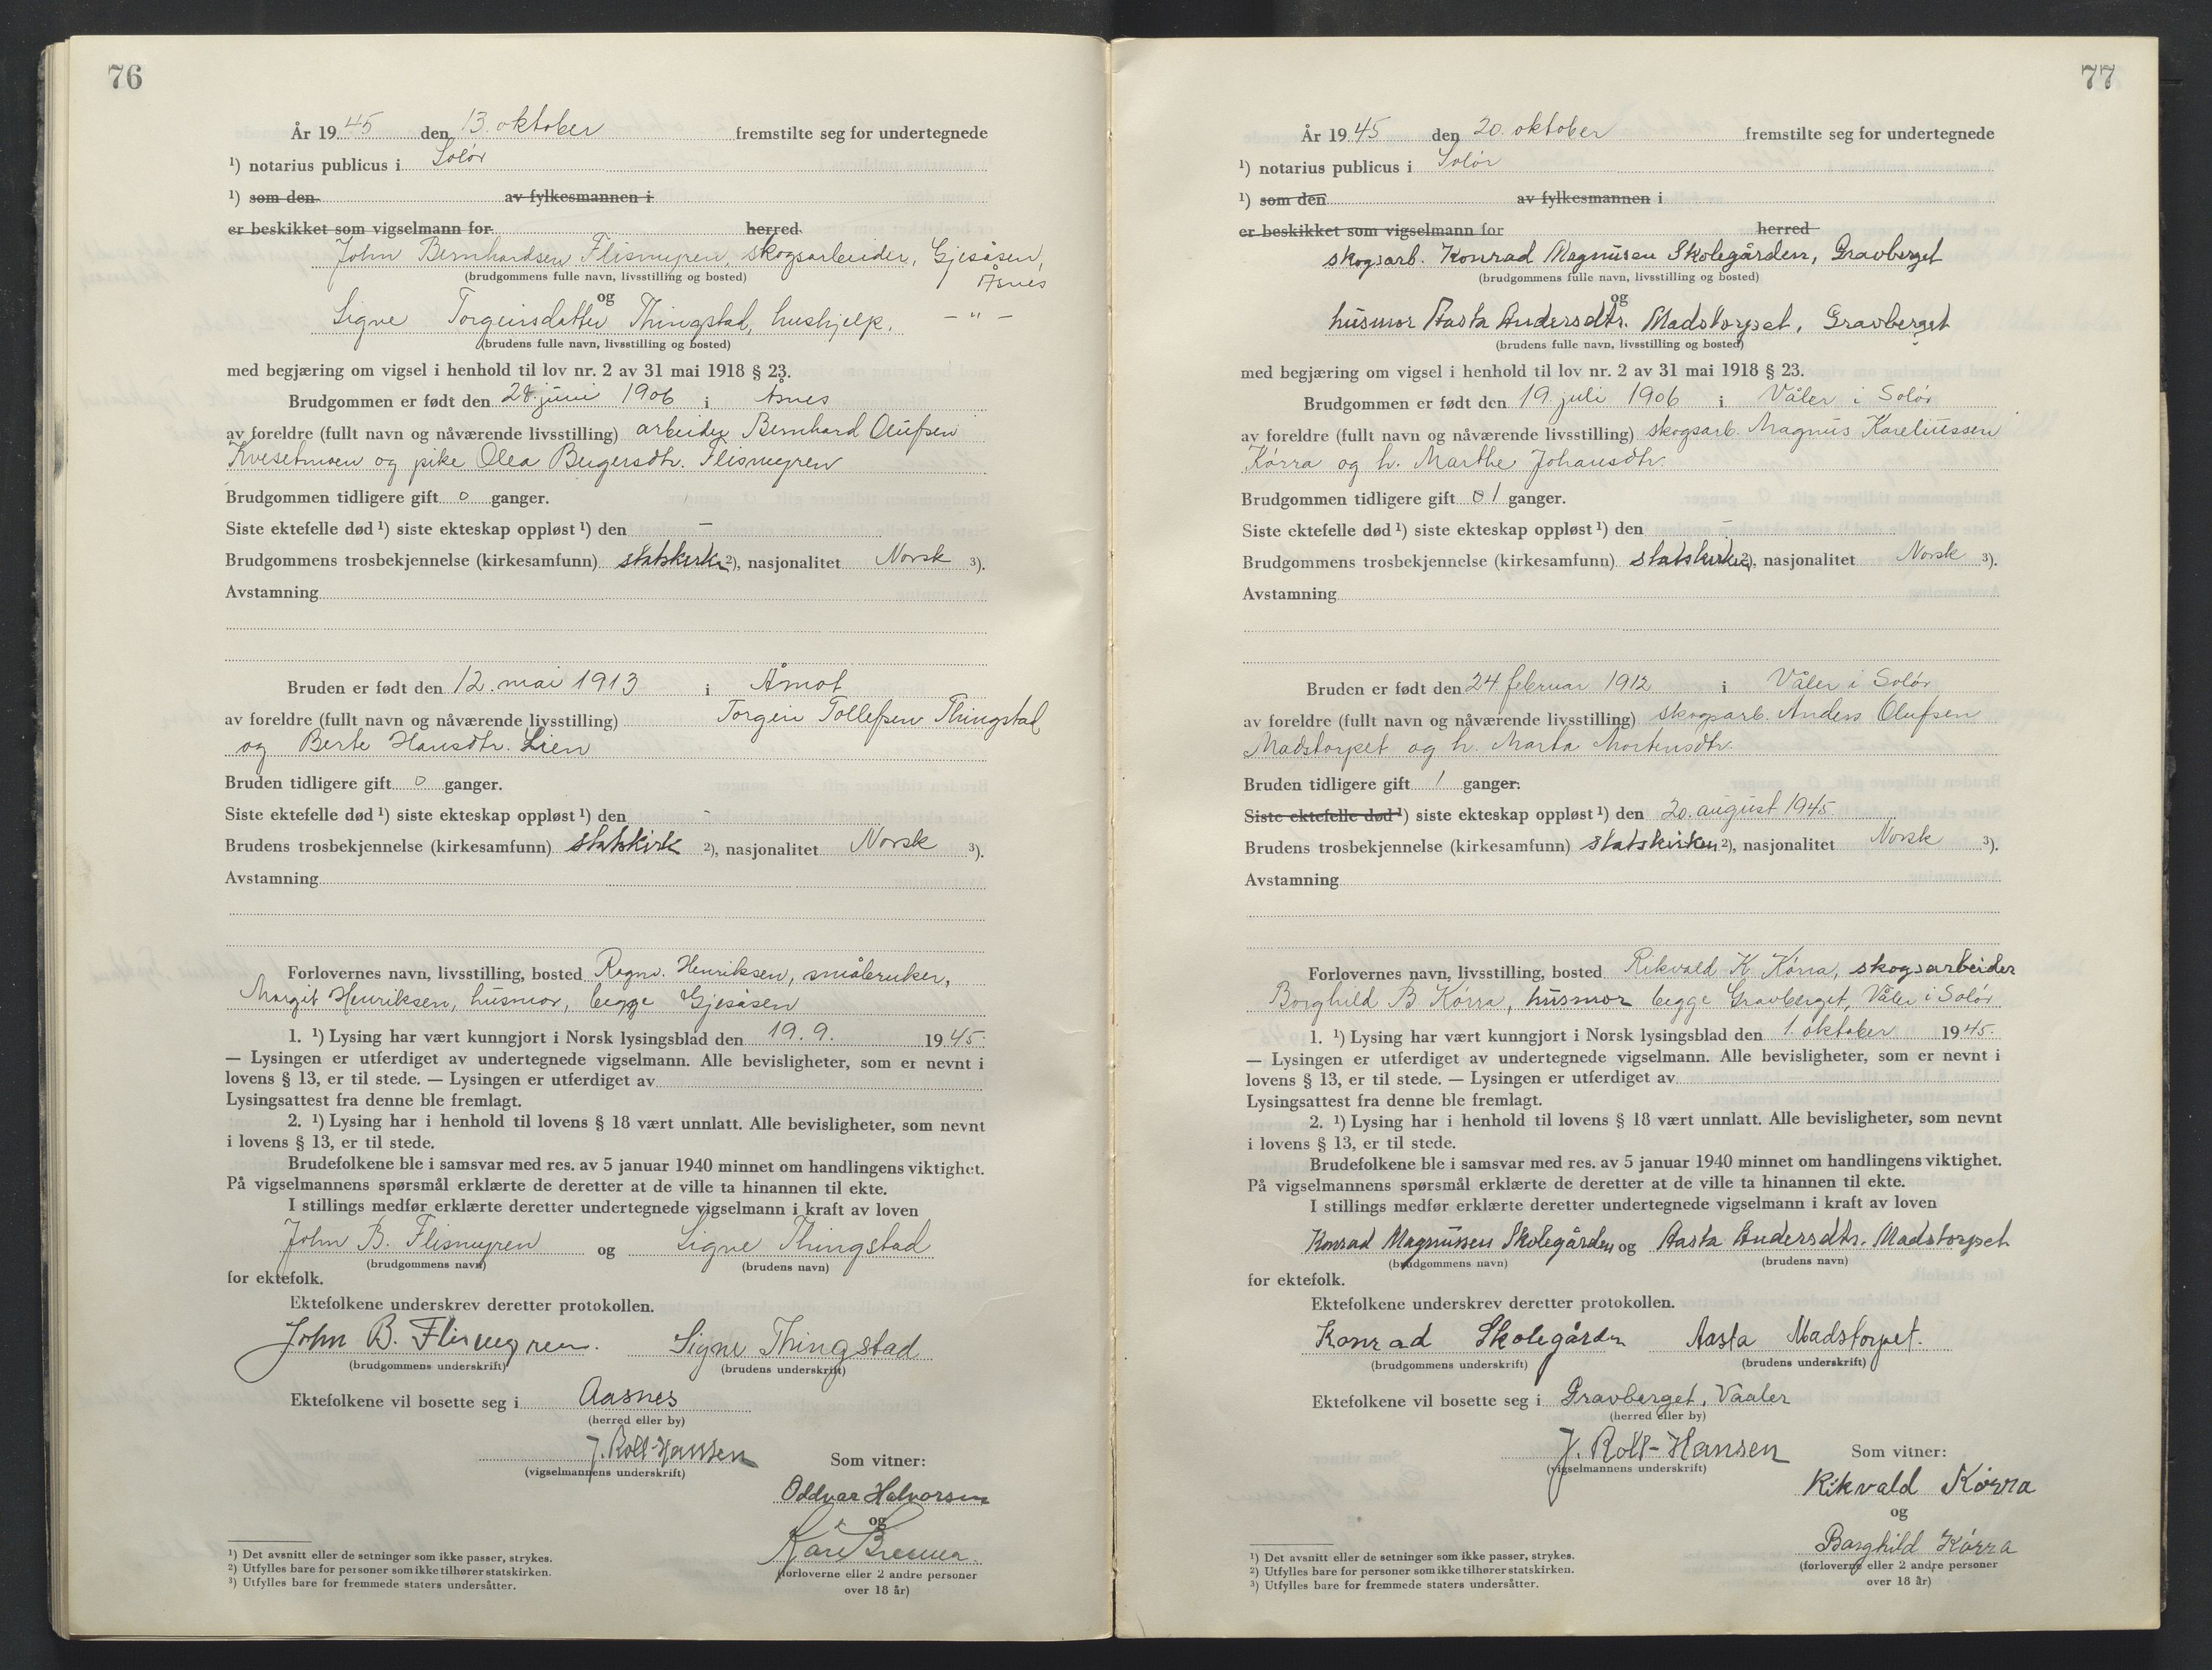 76
År 1945 den 13. oktober fremstilte seg for undertegnede
¹) notarius publicus i Solør
¹) som den av fylkesmannen i
er beskikket som vigselmann for herred
John Bernhardsen Flismyren, skogsarbeider, Gjesåsen,
Åsnes
(brudgommens fulle navn, livsstilling og bosted)
og
Signe Torgeirsdatter Thingstad, hushjelp, — " —
(brudens fulle navn, livsstilling og bosted)
med begjæring om vigsel i henhold til lov nr. 2 av 31 mai 1918 § 23.
Brudgommen er født den 28. juni 1906 i Åsnes
av foreldre (fullt navn og nåværende livsstilling) arbeider Bernhard Olufsen
Kvesetmoen og pike Olea Birgersdtr. Flismyren
Brudgommen tidligere gift 0 ganger.
Siste ektefelle død ¹) siste ekteskap oppløst ¹) den —
Brudgommens trosbekjennelse (kirkesamfunn) statskirke ²), nasjonalitet Norsk ³).
Avstamning
Bruden er født den 12. mai 1913 i Åmot
av foreldre (fullt navn og nåværende livsstilling) Torgeir Tollefsen Thingstad
og Berte Hansdtr. Lien
Bruden tidligere gift 0 ganger.
Siste ektefelle død ¹) siste ekteskap oppløst ¹) den -
Brudens trosbekjennelse (kirkesamfunn) statskirk ²), nasjonalitet Norsk ³).
Avstamning
Forlovernes navn, livsstilling, bosted Ragnv. Henriksen, småbruker,
Margit Henriksen, husmor, begge Gjesåsen
1. ¹) Lysing har vært kunngjort i Norsk lysingsblad den 19. 9. 1945.
— Lysingen er utferdiget av undertegnede vigselmann. Alle bevisligheter, som er nevnt i
lovens § 13, er til stede. — Lysingen er utferdiget av
Lysingsattest fra denne ble fremlagt.
2. ¹) Lysing har i henhold til lovens § 18 vært unnlatt. Alle bevisligheter, som nevnt
i lovens § 13, er til stede.
Brudefolkene ble i samsvar med res. av 5 januar 1940 minnet om handlingens viktighet.
På vigselmannens spørsmål erklærte de deretter at de ville ta hinannen til ekte.
I stillings medfør erklærte deretter undertegnede vigselmann i kraft av loven
John B. Flismyren og Signe Thingstad
(brudgommens navn) (brudens navn)
for ektefolk.
Ektefolkene underskrev deretter protokollen.
John B. Flismyren. Signe Thingstad
(brudgommens underskrift) (brudens underskrift)
Ektefolkene vil bosette seg i Aasnes
(herred eller by)
J. Roll-Hansen
(vigselmannens underskrift)
Som vitner:
Oddvar Halvorsen
og
Kåre
(forloverne eller 2 andre personer
over 18 år)
¹) Det avsnitt eller de setninger som ikke passer, strykes.
²) Utfylles bare for personer som ikke tilhører statskirken.
³) Utfylles bare for fremmede staters undersåtter.
77
År 1945 den 20. oktober fremstilte seg for undertegnede
¹) notarius publicus i Solør
¹) som den av fylkesmannen i
er beskikket som vigselmann for herred
skogsarb. Konrad Magnusen Skolegården, Gravberget
(brudgommens fulle navn, livsstilling og bosted)
og
husmor Aasta Andersdtr. Madstorpet, Gravberget
(brudens fulle navn, livsstilling og bosted)
med begjæring om vigsel i henhold til lov nr. 2 av 31 mai 1918 § 23.
Brudgommen er født den 19. juli 1906 i Våler i Solør
av foreldre (fullt navn og nåværende livsstilling) skogsarb. Magnus Kareliussen
Kørra og h. Marthe Johansdtr.
Brudgommen tidligere gift 0 1 ganger.
Siste ektefelle død ¹) siste ekteskap oppløst ¹) den —
Brudgommens trosbekjennelse (kirkesamfunn) statskirken ²), nasjonalitet Norsk ³).
Avstamning
Bruden er født den 24. februar 1912 i Våler i Solør
av foreldre (fullt navn og nåværende livsstilling) skogsarb. Anders Olufsen
Madstorpet og h. Marta Mortensdtr.
Bruden tidligere gift 1 ganger.
Siste ektefelle død ¹) siste ekteskap oppløst ¹) den 20. august 1945.
Brudens trosbekjennelse (kirkesamfunn) statskirken ²), nasjonalitet Norsk ³).
Avstamning
Forlovernes navn, livsstilling, bosted Rikvald K Kørra, skogsarbeider
Borghild B Kørra, husmor begge Gravberget, Våler i Solør
1. ¹) Lysing har vært kunngjort i Norsk lysingsblad den 1. oktober 1945.
— Lysingen er utferdiget av undertegnede vigselmann. Alle bevisligheter, som er nevnt i
lovens § 13, er til stede. — Lysingen er utferdiget av
Lysingsattest fra denne ble fremlagt.
2. ¹) Lysing har i henhold til lovens § 18 vært unnlatt. Alle bevisligheter, som nevnt
i lovens § 13, er til stede.
Brudefolkene ble i samsvar med res. av 5 januar 1940 minnet om handlingens viktighet.
På vigselmannens spørsmål erklærte de deretter at de ville ta hinannen til ekte.
I stillings medfør erklærte deretter undertegnede vigselmann i kraft av loven
Konrad Magnussen Skolegården og Aasta Andersdtr. Madstorpet
(brudgommens navn) (brudens navn)
for ektefolk.
Ektefolkene underskrev deretter protokollen.
Konrad Skolegården Aasta Madstorpet.
(brudgommens underskrift) (brudens underskrift)
Ektefolkene vil bosette seg i Gravberget, Vaaler
(herred eller by)
J. Roll-Hansen
(vigselmannens underskrift)
Som vitner:
Rikvald Kørra
og
Borghild Kørra
(forloverne eller 2 andre personer
over 18 år)
¹) Det avsnitt eller de setninger som ikke passer, strykes.
²) Utfylles bare for personer som ikke tilhører statskirken.
³) Utfylles bare for fremmede staters undersåtter.